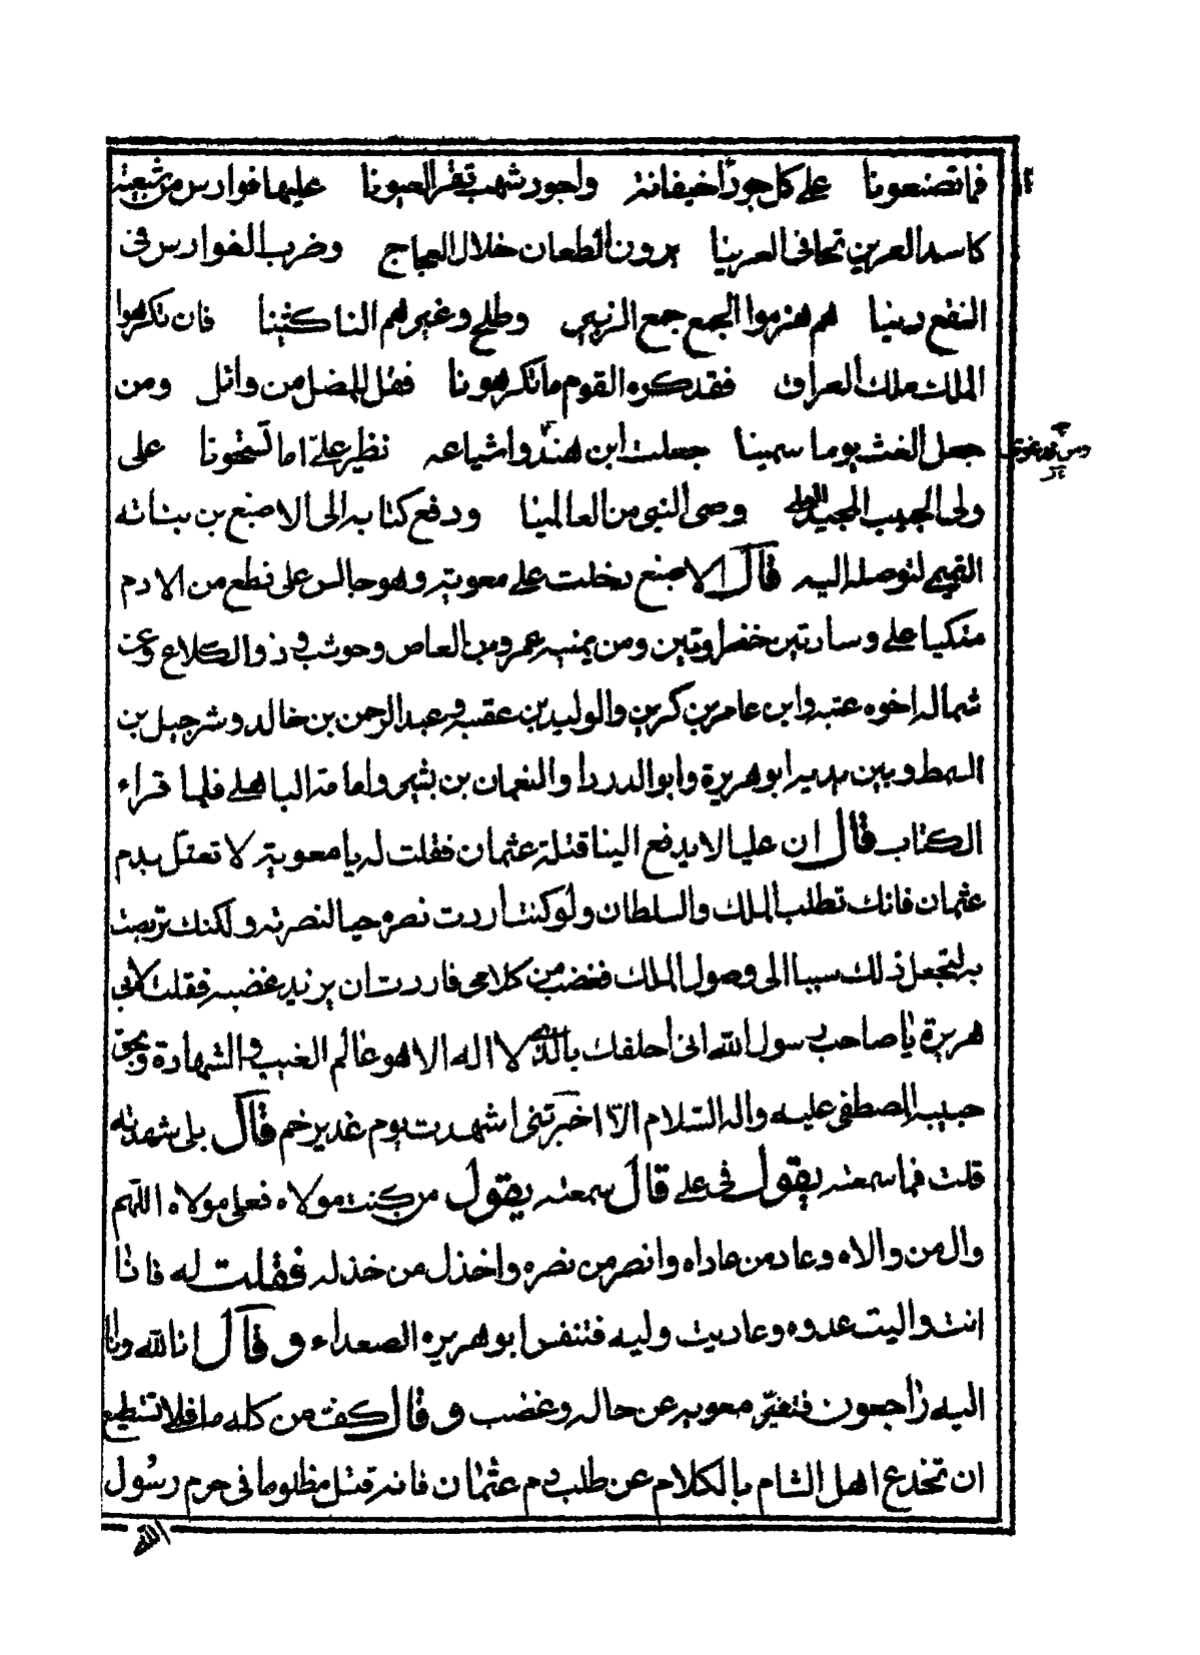 فما تصنعونا على كل جرداء خيفانة واجرد شهب تقر العيونا عليها فوارس من شيعة
كاسد العرين تحافى العرينا يرون الطعان خلال العجاج وضرب الفوارس فى
النقع دينا هم هزموا الجمع جمع الزبير وطلح وغيرهم الناكثينا فان تكرهوا
الملك ملك العراق فقد كره القوم ما تكرهونا فقل للمضلل من وائل ومن
جعل الغث يوما سمينا جعلت ابن هند واشياعه نظير على اما تستحونا على
ولى الحبيب المجيد وصى النبى من العالمينا ودفع كتابه الى الاصبغ بن بناته
التميمى لتوصله اليه قال الاصبغ دخلت على معوية وهو جالس على نطع من الادم
متكيا على وسادتين خضراوتين ومن يمنيه عمرو بن العاص وحوشب وذو الكلاع وعن
شماله اخوه عتبه وابن عامر بن كريز والوليد بن عقبه وعبد الرحمن بن خالد وشرجيل بن
السمط وبين يديه ابو هريرة وابو الدردا والنعمان بن بشير وامامة الباهلى فلما قراء
الكتاب قال ان عليا لا يدفع الينا قتلة عثمان فقلت له يا معوية لا تعتل بدم
عثمان فانك تطلب الملك والسلطان ولو كنت اردت نصره حيا لنصرته ولكنك تربصت
به لتجعل ذلك سببا الى وصول الملك فغضب من كلامى فاردت ان يزيد غضبه فقلت لابى
هريرة يا صاحب رسول الله انى احلفك بالله لا اله الا هو عالم الغيب والشهادة وبحق
حبيبه المصطفى عليه واله السلام الا اخبرتنى اشهدت يوم غدير خم قال بلى شهدته
قلت فما سمعته يقول فى على قال سمعته يقول من كنت مولاه فعلى مولاه اللهم
وال من والاه وعاد من عاداه وانصر من نصره واخذل من خذله فقلت له فاذا
انت واليت عدوه وعاديت وليه فتنفس ابو هريره الصعداء وقال انا لله وانا
اليه راجعون فتغير معويه عن حاله وغضب وقال كف من كلامك فلا تستطيع
ان تخدع اهل الشام بالكلام عن طلب دم عثمان فانه قتل مظلوما فى حرم رسول
الله